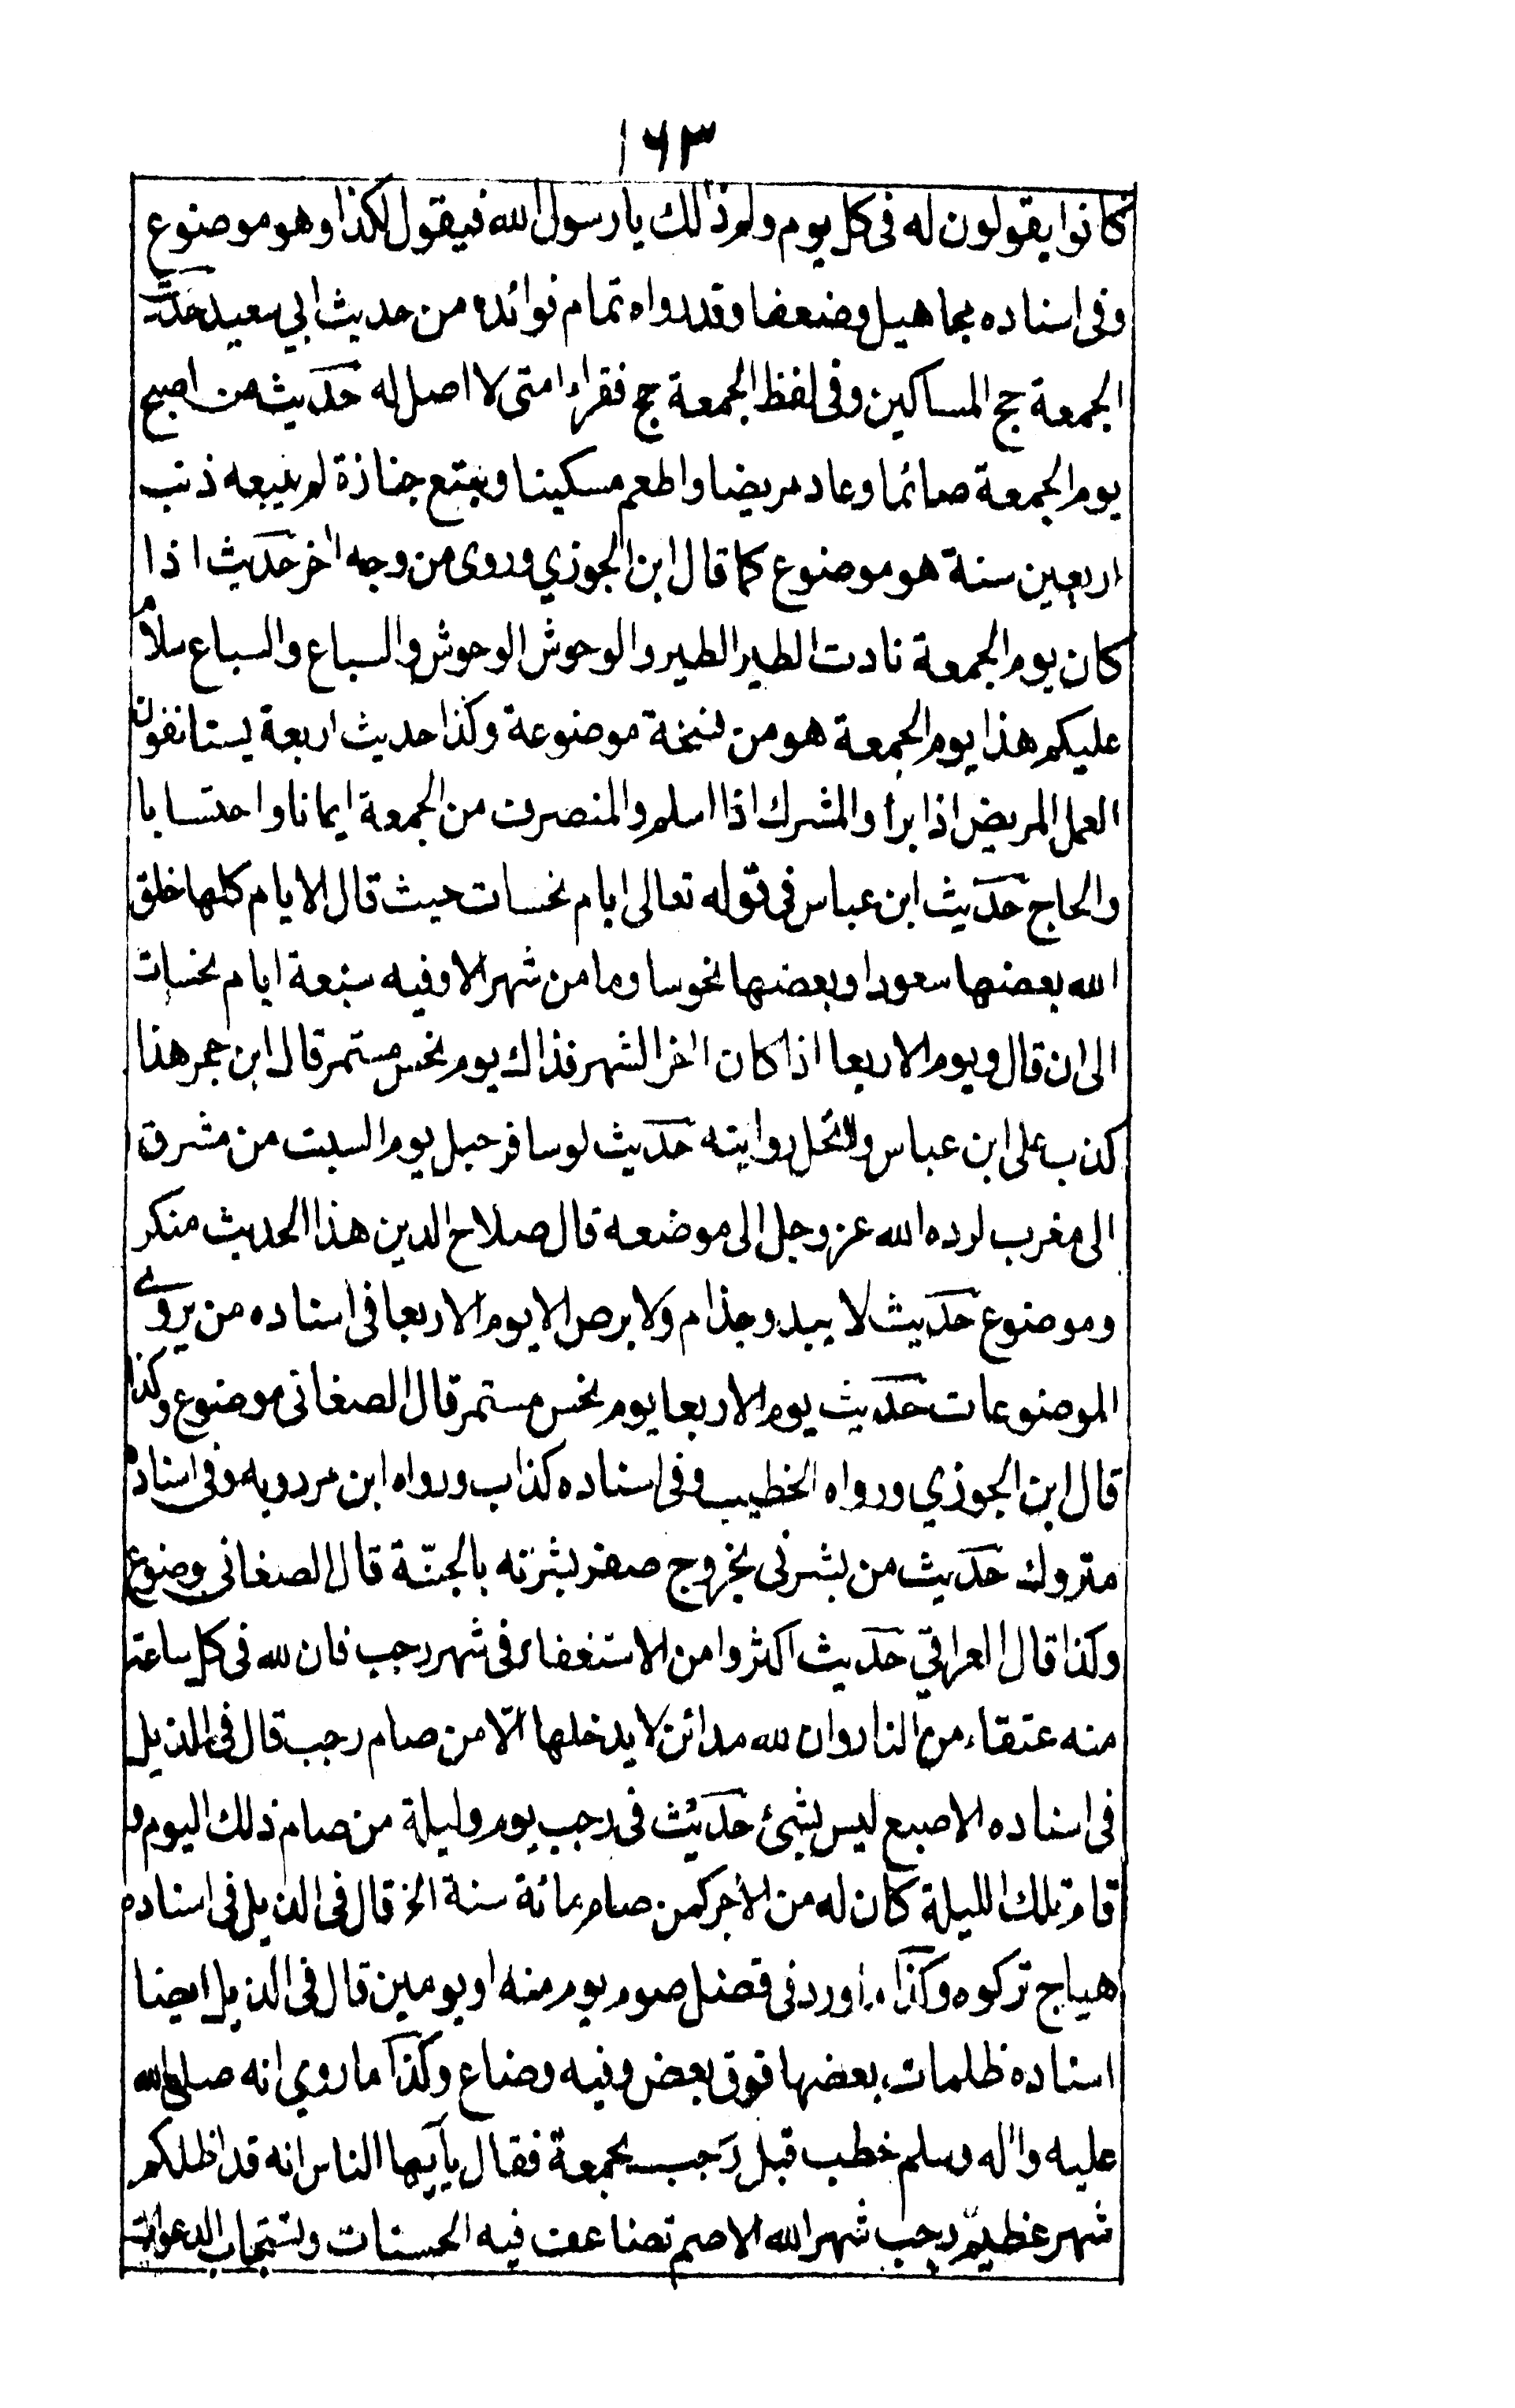 ١٦٣
كانوا يقولون له فى كل يوم ولم ذالك يا رسول الله فيقول لكذا وهو موضوع
وفى اسناده مجاهيل وضعفا وقد رواه تمام فوائده من حديث ابي سعيد حديث
الجمعة حج المساكين وفى لفظ الجمعة حج فقراء امتى لا اصل له حديث من اصبح
يوم الجمعة صائما وعاد مريضا واطعم مسكينا ويتبع جنازة لم يتبعه ذنب
اربعين سنة هو موضوع كما قال ابن الجوزي وروى من وجه اخر حديث اذا
كان يوم الجمعة نادت الطير الطير والوحوش الوحوش والسباع والسباع سلام
عليكم هذا يوم الجمعة هو من نسخة موضوعة وكذا حديث اربعة يستانفون
العمل المريض اذا برأ والمشرك اذا اسلم والمنصرف من الجمعة ايمانا واحتسابا
والحاج حديث ابن عباس فى قوله تعالى ايام نحسات حيث قال الايام كلها خلق
الله بعضها سعودا وبعضها نحوسا وما من شهر الا وفيه سبعة ايام نحسات
الى ان قال ويوم الاربعا اذا كان اخر الشهر فذاك يوم نحس مستمر قال ابن حجر هذا
كذب على ابن عباس ولا تحل روايته حديث لو سافر جبل يوم السبت من مشرق
الى مغرب لرده الله عز وجل الى موضعه قال صلاح الدين هذا الحديث منكر
وموضوع حديث لا يبدو جذام ولا برص الا يوم الاربعا فى اسناده من يروى
الموضوعات حديث يوم الاربعا يوم نحس مستمر قال الصغانى موضوع وكذا
قال ابن الجوزي ورواه الخطيب وفى اسناده كذاب ورواه ابن مردويه وفى اسناده
متروك حديث من بشرنى بخروج صفر بشرته بالجنّة قال الصغانى موضوع
وكذا قال العراقي حديث اكثروا من الاستغفار فى شهر رجب فان لله فى كل ساعة
منه عتقاء من النار وان لله مدائن لا يدخلها الّا من صام رجب قال فى الذيل
فى اسناده الاصبع ليس بشئ حديث فى رجب يوم وليلة من صام ذلك اليوم و
قام تلك الليلة كان له من الاجر كمن صام مائة سنة الخ قال فى الذيل فى اسناده
هياج تركوه وكذا ما ورد فى فضل صوم يوم منه او يومين قال فى الذيل ايضا
اسناده ظلمات بعضها فوق بعض وفيه وضاع وكذا ما روي انه صلى الله
عليه واله وسلم خطب قبل رجب بجمعة فقال يا ايها الناس انه قد اظلكم
شهر عظيم رجب شهر الله الاصم تضاعف فيه الحسنات وتستجاب الدعوات